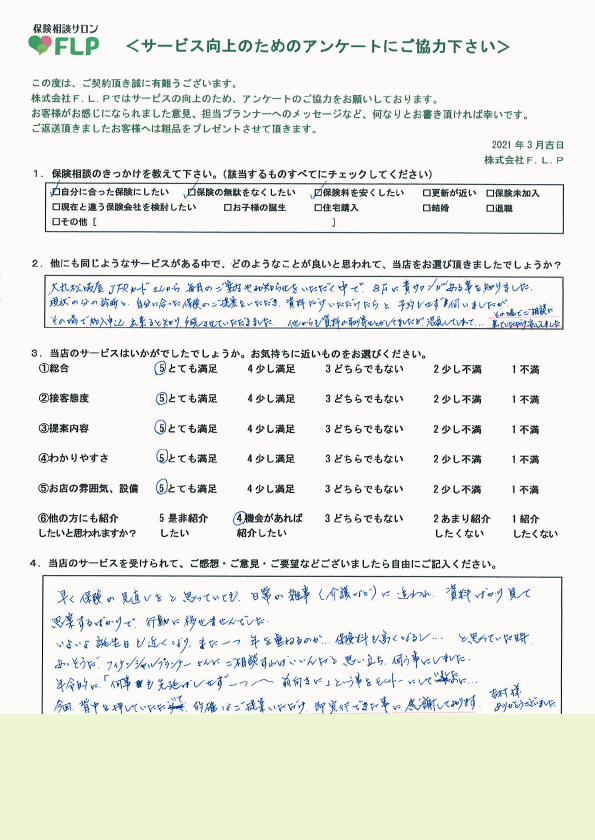 保険相談サロン
FLP
＜サービス向上のためのアンケートにご協力下さい＞
この度は、ご契約頂き誠に有難うございます。
株式会社F．L．Pではサービスの向上のため、アンケートのご協力をお願いしております。
お客様がお感じになられました意見、担当プランナーへのメッセージなど、何なりとお書き頂ければ幸いです。
ご返送頂きましたお客様へは粗品をプレゼントさせて頂きます。
2021年3月吉日
株式会社F．L．P
1．保険相談のきっかけを教えて下さい。(該当するものすべてにチェックしてください)
☑自分に合った保険にしたい ☑保険の無駄をなくしたい ☑保険料を安くしたい □更新が近い □保険未加入
□現在と違う保険会社を検討したい □お子様の誕生 □住宅購入 □結婚 □退職
□その他 [ ]
2．他にも同じようなサービスがある中で、どのようなことが良いと思われて、当店をお選び頂きましたでしょうか？
大丸松坂屋JFRカードさんから毎月のご案内やお知らせをいただく中で 8Fに貴サロンがある事を知りました。
現状の分の診断と、自分に合った保険のご提案をいただき、資料だけいただけたらと、予約もせず伺いましたが、
その場で申込も出来ると知り 手続させていただきました。 他からも資料の取寄せなどしてましたが混乱してしまって…
その場でご相談に
3．当店のサービスはいかがでしたでしょうか。お気持ちに近いものをお選びください。
①総合 5とても満足 4少し満足 3どちらでもない 2少し不満 1不満
②接客態度 5とても満足 4少し満足 3どちらでもない 2少し不満 1不満
③提案内容 5とても満足 4少し満足 3どちらでもない 2少し不満 1不満
④わかりやすさ 5とても満足 4少し満足 3どちらでもない 2少し不満 1不満
⑤お店の雰囲気、設備 5とても満足 4少し満足 3どちらでもない 2少し不満 1不満
⑥他の方にも紹介 5是非紹介 4機会があれば 3どちらでもない 2あまり紹介 1紹介
したいと思われますか？ したい 紹介したい したくない したくない
4．当店のサービスを受けられて、ご感想・ご意見・ご要望などございましたら自由にご記入ください。
早く保険の見直しをと思っていても、日常の雑事（介護など）に追われ、資料ばかり見て
思案するばかりで、行動に移せませんでした。
いよいよ誕生日も近くなり、また一つ年を重ねるのか… 保険料も高くなるし… と思っていた時
そうだ、ファイナンシャルプランナーさんにご相談すればいいんだと思い立ち、伺う事にしました。
年令的に「何事も先延ばしせず一つ一つ前向きに」という事をモットーにして
今回、背中を押していただき、的確なご提案いただけ、即実行できた事に感謝しております。
吉村様
ありがとうございました